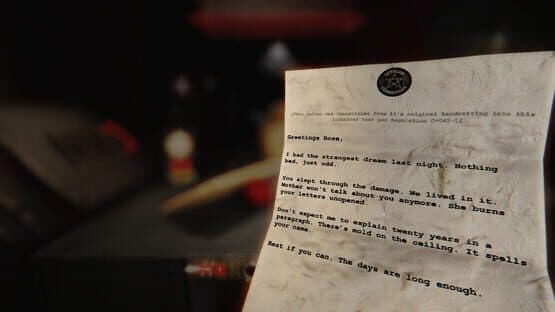 [This letter was transcribed from it's original handwriting into this
Greetings Rose,
I had the strangest dream last night. Nothing
bad, just odd.
You slept through the damage. We lived in it.
Mother won't talk about you anymore. She burns
your letters unopened.
Don't expect me to explain twenty years in a
paragraph. There's mold on the ceiling. It spells
your name.
Rest if you can. The days are long enough.